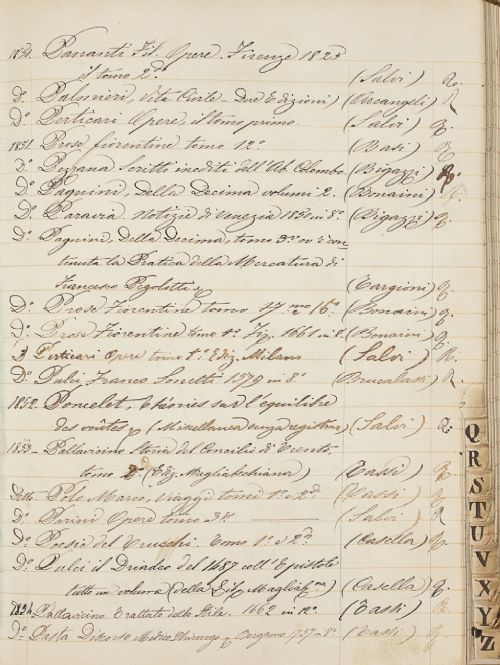 1850. Pananti Fil. Opere. Firenze 1825
il tomo 2.do (Salvi) R.
D.o Palmieri, Vita Civile. Due Edizioni) (Arcangeli) R
D.o Perticari Opere, il tomo primo. (Salvi) R.
1851. Prose fiorentine tomo 12.o (Basi) R.
D.o Pezzana Scritti inediti dell'Ab. Colombo. (Bigazzi) R.
D.o Pagnini, Della Decima volumi 2. (Bonaini) R.
D.o Paravia Notizie di Venezia 1830 in 8.o (Bigazzi) R.
D.o Pagnini, Della Decima, tomo 3.o ov'è con
tenuta la Pratica della Mercatura di
Francesco Pegolotti (Targioni) R.
D.o Prose Fiorentine tomo 17.mo e 16.o (Bonaini) R.
D.o Prose Fiorentine tomo 1.o 1661 in 8. (Bonaini) R.
D.o Perticari Opere tomo 1.o Ediz. Milano (Salvi) R.
D.o Pulci Franco Sonetti 1579 in 8.o (Brucalassi) R.
1852. Poncelet, théories sur l'équilibre
des voûtes (Miscellanea senza registro) (Salvi) R.
1853 - Pallavicino Storia del Concilio di Trento,
tomo 2.o (Ediz. Magliabechiana) (Tassi) R.
Detto - Polo Marco, Viaggi tomi 1.o e 2.do (Tassi) R.
D.o Parini Opere tomo 3.o (Salvi) R
D.o Poesie del tomo 1.o e 2.do (Casella) R.
D.o Pulci il Driadeo del 1487 coll'Epistole
tutto in volume (della Lib. Magliab.na) (Casella) R.
1854. Pallavicino Trattato dello Stile. 1662 in 12.o (Tassi) R.
D.o Pasta Discorso Medico Chirurgo Bergamo in 8.o (Tassi) R.
Q
R
S
T
U
V
X
Y
Z